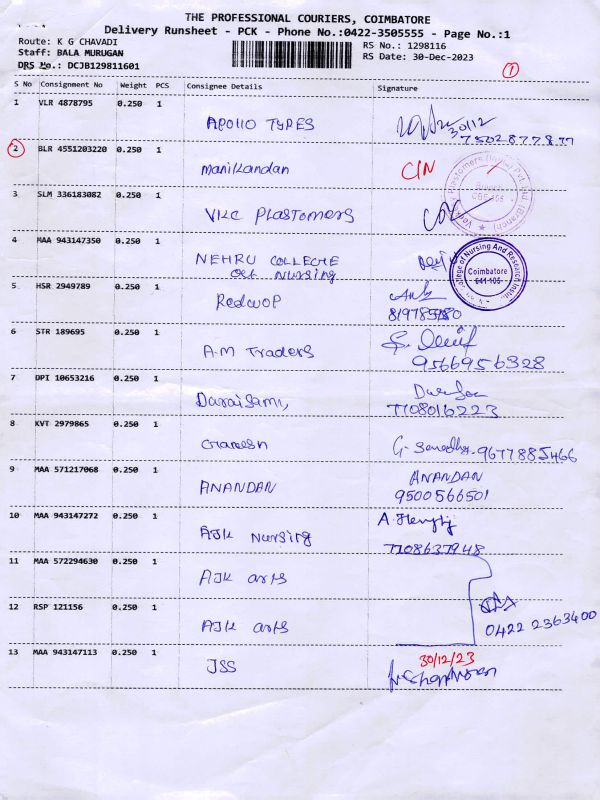 THE PROFESSIONAL COURIERS, COIMBATORE
Delivery Runsheet - PCK - Phone No.:0422-3505555 - Page No.:1
Route: K G CHAVADI
Staff: BALA MURUGAN
DRS No.: DCJB129811601
RS No.: 1298116
RS Date: 30-Dec-2023
1
S No Consignment No Weight PCS Consignee Details Signature
1 VLR 4878795 0.250 1 APOllO TYPES 30/12
2 BLR 4551203220 0.250 1 Manikandan CIN
3 SLM 336183082 0.250 1 VKC Plastomers
4 MAA 943147350 0.250 1 NEHRU COLLEGE
OF Nursing
College of Nursing And Research
Coimbatore
641 105
5 HSR 2949789 0.250 1 RedwoP
6 STR 189695 0.250 1 A.M Traders
9566956328
7 DPI 10653216 0.250 1 Daraisami,
7108016223
8 KVT 2979865 0.250 1 Ganesh 9677885466
9 MAA 571217068 0.250 1 ANANDAN ANANDAN
9500566501
10 MAA 943147272 0.250 1 AJK Nursing
7108637948
11 MAA 572294630 0.250 1 AJK arts
12 RSP 121156 0.250 1 AJK arts
0422 2363400
13 MAA 943147113 0.250 1 JSS 30/12/23